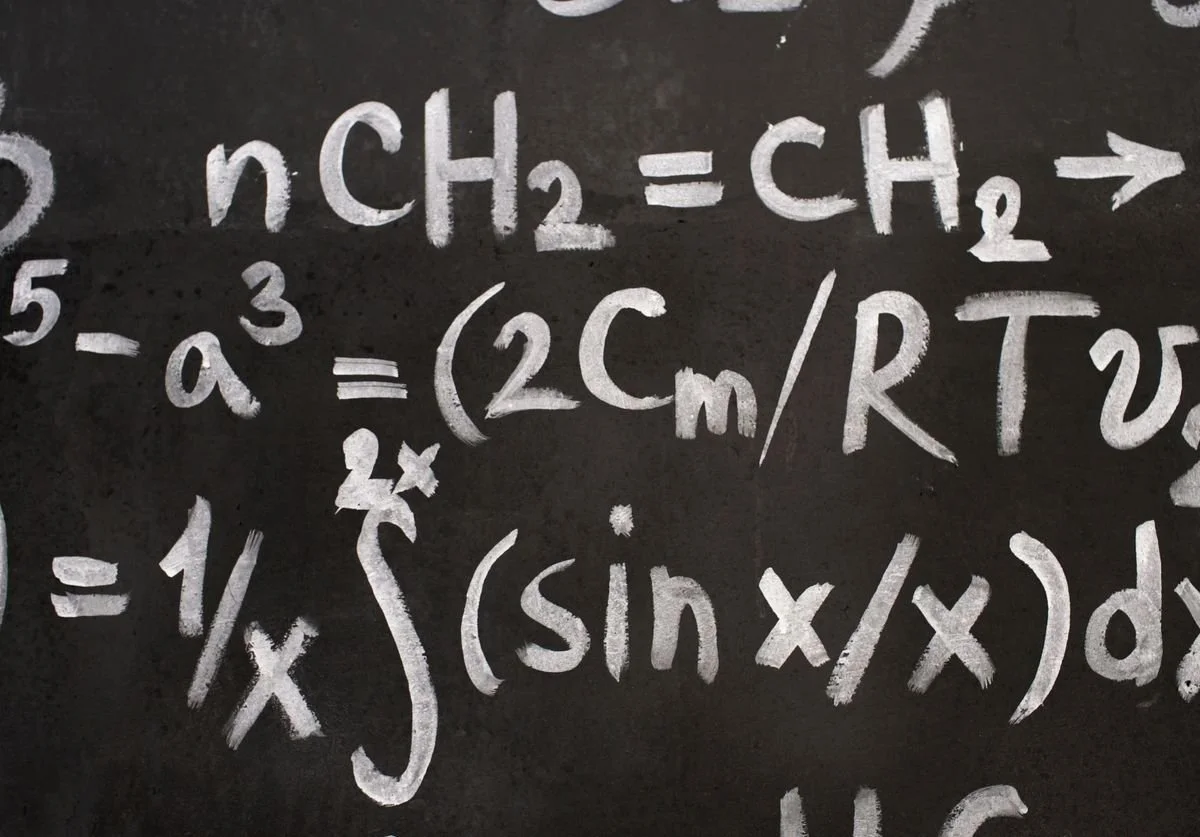 nCH₂=CH₂→
⁵-a³=(2Cₘ/RTv₂
)=1/x∫²ˣ(sin x/x)dx